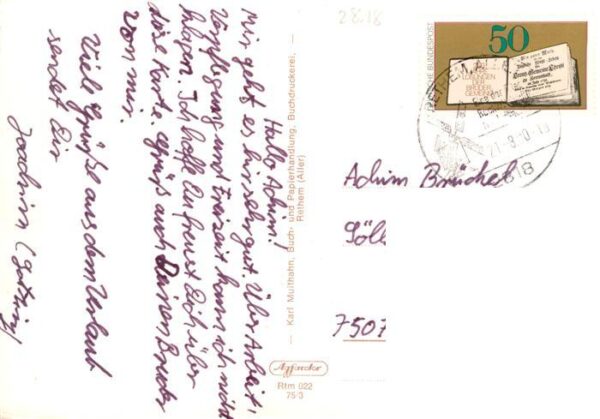 Hallo Achim!
Mir geht es hier sehr gut. Über Arbeit,
Verpflegung und Freizeit kann ich nicht
klagen. Ich hoffe Du freust Dich über
diese Karte. Grüß auch Deinen Bruder
von mir.
Viele Grüße aus dem Urlaub
sendet Dir
Joachim
— Karl Muithahn, Buch- und Papierhandlung, Buchdruckerei, —
Rethem (Aller)
Rtm 022
75/3
28.18
50
DEUTSCHE BUNDESPOST
LOSUNGEN
DER
BRÜDER
GEMEINE
Achim Brüchel
Söll
7507